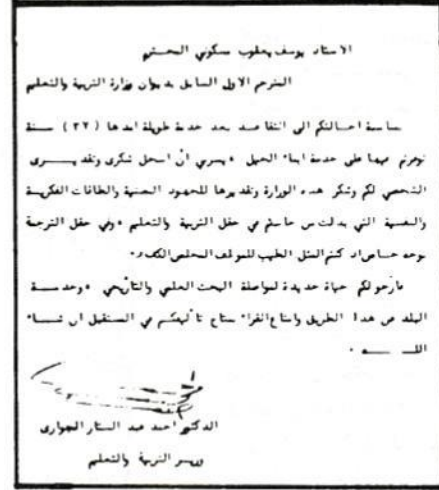 الاستاذ يوسف يعقوب مسكوني المحترم
المترجم الاول السابق بديوان وزارة التربية والتعليم
بمناسبة احالتكم الى التقاعد بعد خدمة طويلة امدها (٣٢) سنة
توفرتم فيها على خدمة ابناء الجيل ، يسرني ان اسجل شكري وتقديري
الشخصي لكم وشكر هذه الوزارة وتقديرها للجهود الحسية والطاقات الفكرية
والنفسية التي بذلت من جانبكم في حقل التربية والتعليم ، وفي حقل الترجمة
بوجه خاص اذ كنتم المثل الطيب للموظف المخلص الكفء .
فارجو لكم حياة جديدة لمواصلة البحث العلمي والتأريخي ، وخدمة
البلد من هذا الطريق وامتاع القراء بنتاج تأليفكم في المستقبل ان شاء
اللــه .
الدكتور احمد عبد الستار الجواري
وزير التربية والتعليم